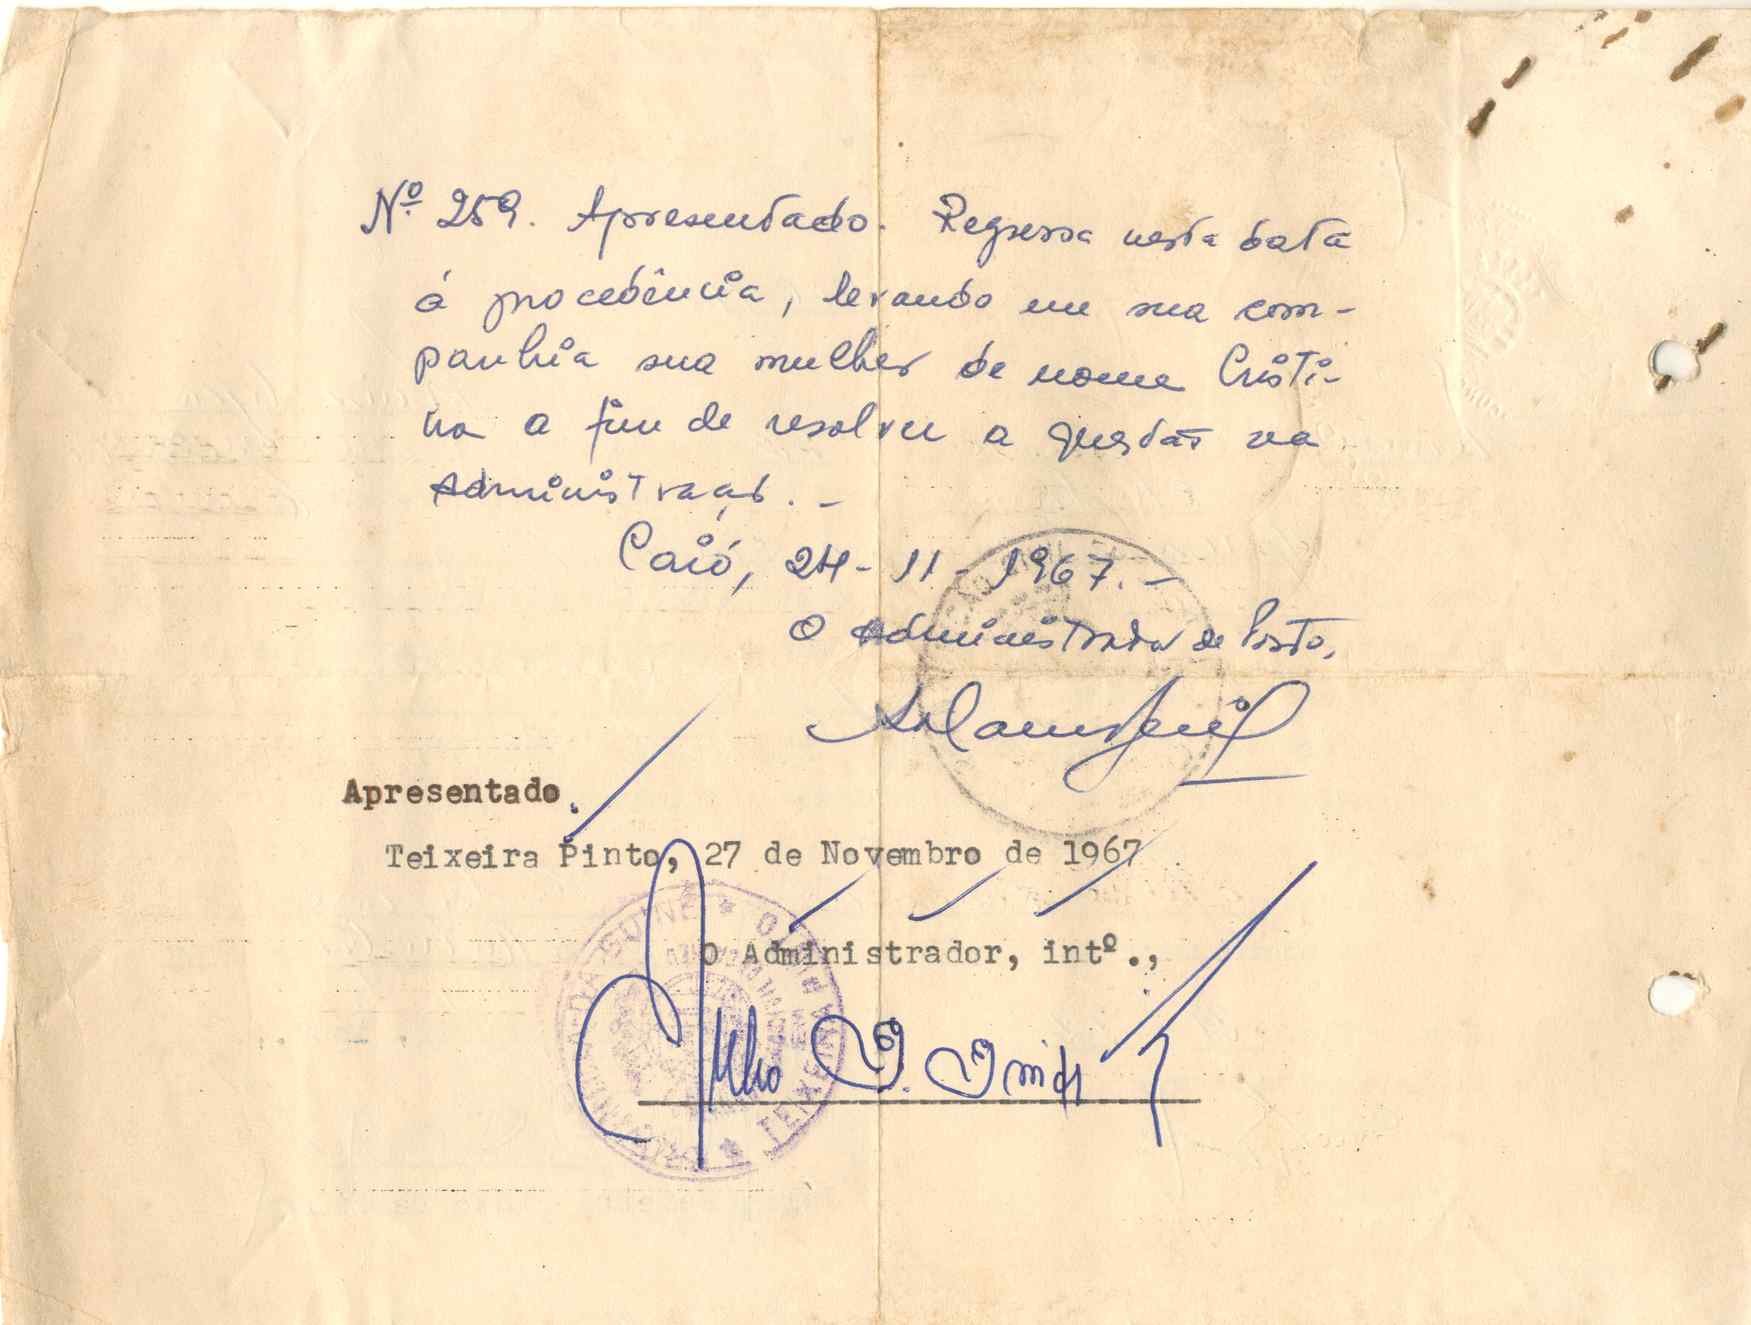 Nº 259. Apresentado. Regressa nesta data
á procedência, levando em sua com-
panhia sua mulher de nome Cristi-
na a fim de resolver a questão na
Administração. -
Caió, 24-11-1967. -
O Administrador de Posto,
Apresentado.
Teixeira Pinto, 27 de Novembro de 1967
O Administrador, intº.,
DA GUINÉ
TEIXEIRA